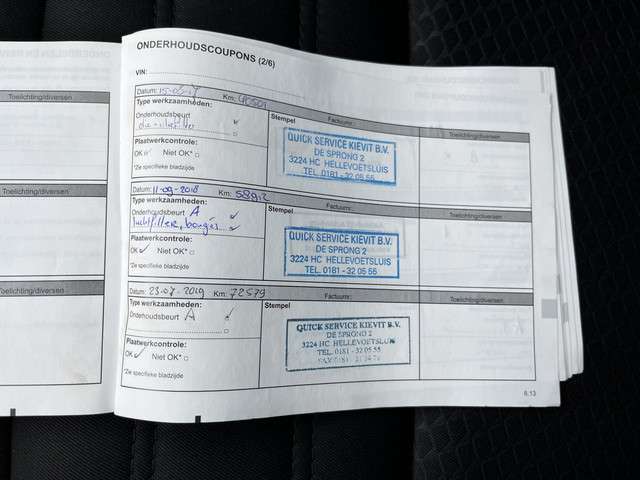 Toelichting/diversen
Toelichting/diversen
Toelichting/diversen
ONDERHOUDSCOUPONS (2/6)
VIN:
Datum: 15-05-17 Km: 40501
Type werkzaamheden:
Onderhoudsbeurt
Plaatwerkcontrole:
OK Niet OK*
*Zie specifieke bladzijde
Stempel Factuurnr.:
QUICK SERVICE KIEVIT B.V.
DE SPRONG 2
3224 HC HELLEVOETSLUIS
TEL. 0181 - 32 05 55
Toelichting/diversen
Datum: 11-09-2018 Km:
Type werkzaamheden:
Onderhoudsbeurt A
luchtfilter, bougies
Plaatwerkcontrole:
OK Niet OK*
*Zie specifieke bladzijde
Stempel Factuurnr.:
QUICK SERVICE KIEVIT B.V.
DE SPRONG 2
3224 HC HELLEVOETSLUIS
TEL. 0181 - 32 05 55
Toelichting/diversen
Datum: 23-07-2019 Km: 72579
Type werkzaamheden:
Onderhoudsbeurt A
Plaatwerkcontrole:
OK Niet OK*
*Zie specifieke bladzijde
Stempel Factuurnr.:
QUICK SERVICE KIEVIT B.V.
DE SPRONG 2
3224 HC HELLEVOETSLUIS
TEL. 0181 - 32 05 55
FAX 0181 -
Toelichting/diversen
6.13